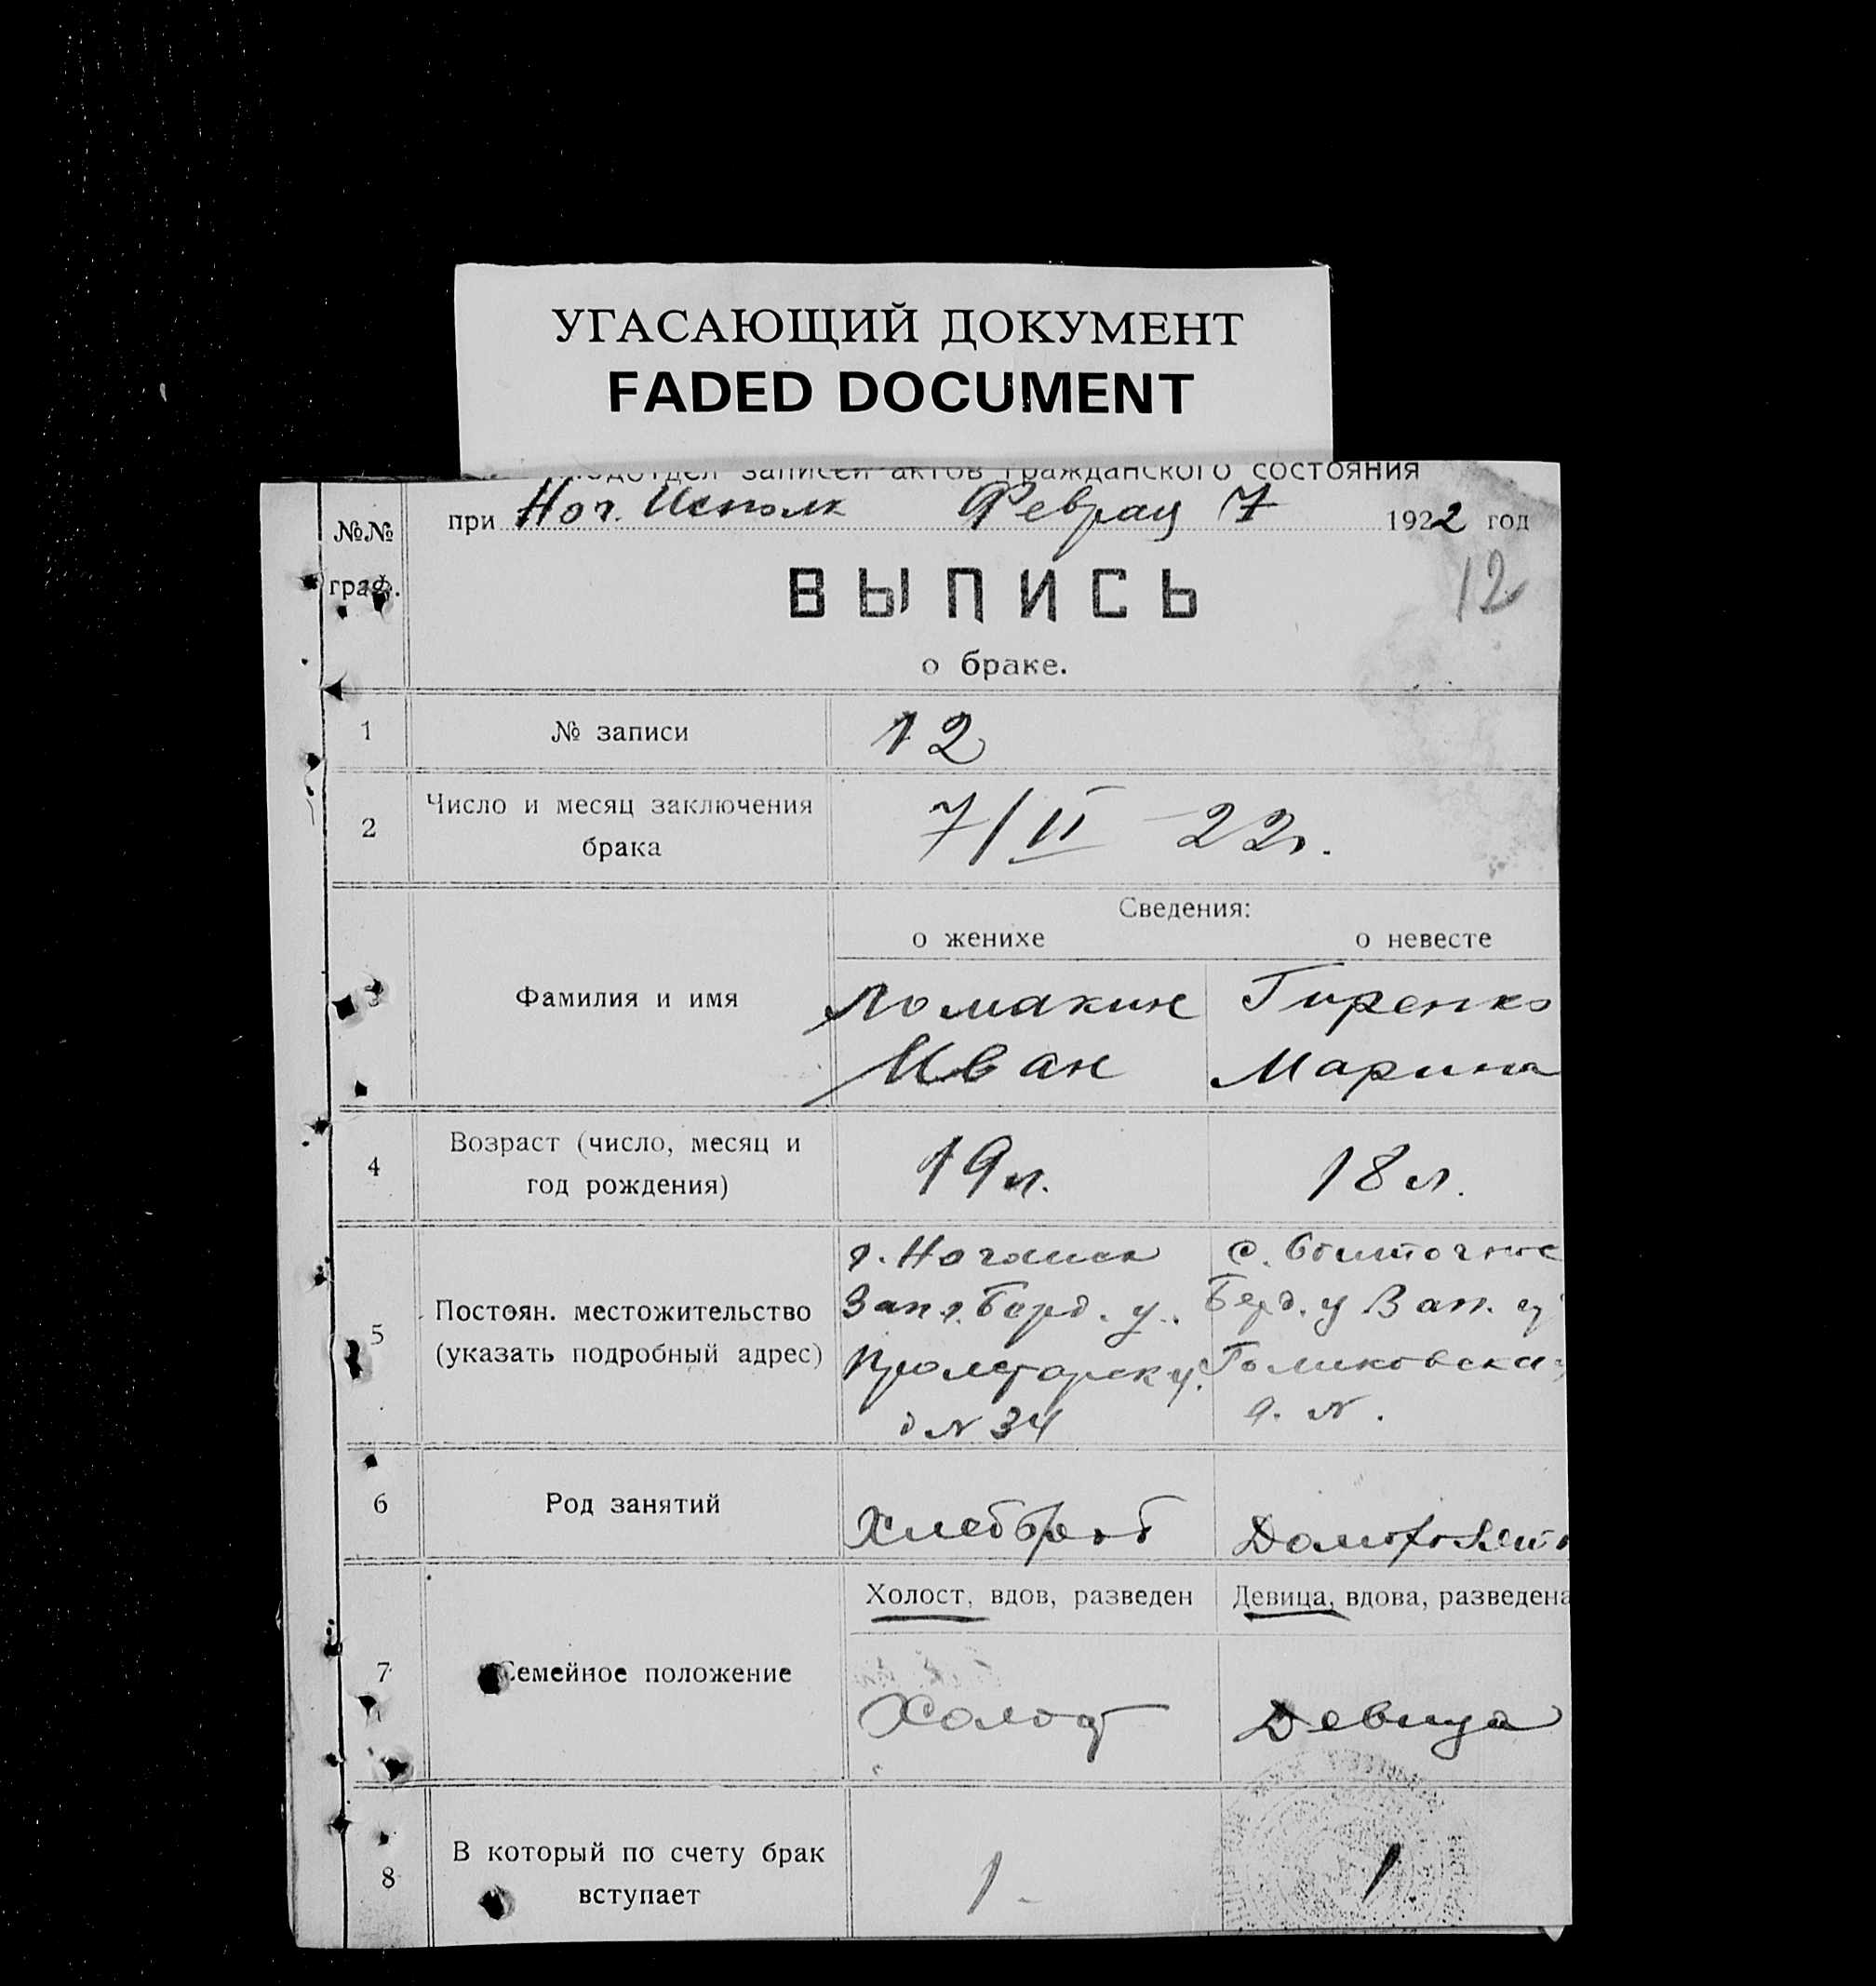 УГАСАЮЩИЙ ДОКУМЕНТ
FADED DOCUMENT
подотдел записей актов гражданского состояния
№№ граф.
при Ног. Исполк Феврал 7 1922 год
12
ВЫПИСЬ
о браке.
1 № записи 12
2 Число и месяц заключения
брака
7/II - 22г.
Сведения:
о женихе о невесте
3 Фамилия и имя
Ломакин Гиренко
Иван Марина
4 Возраст (число, месяц и
год рождения)
19 л. 18 л.
5 Постоян. местожительство
(указать подробный адрес)
г. Ногайск с.
Зап г. Берд. у. Берд. у Зап. г
Пролетарск у.
д N 34 д. N.
6 Род занятий
Хлебороб
Холост, вдов, разведен Девица, вдова, разведена
7 Семейное положение
Холост Девица
8 В который по счету брак
вступает
1 - 1